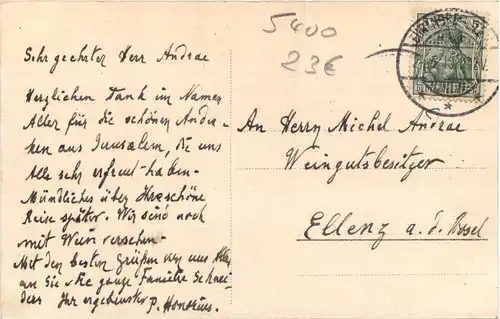 5400
23€
Sehr geehrter Herr Andrae
Herzlichen Dank im Namen
Aller für die schönen Anden-
ken aus Jerusalem, die uns
Alle sehr erfreut haben-
Mündliches über Ihre schöne
Reise später. Wir sind noch
mit Wein versehen-
Mit den besten Grüßen von uns Allen
an Sie & die ganze Familie
Ihr ergebenster P. Honorius.
An Herrn Michel Andrae
Weingutsbesitzer
Ellenz a. d. Mosel